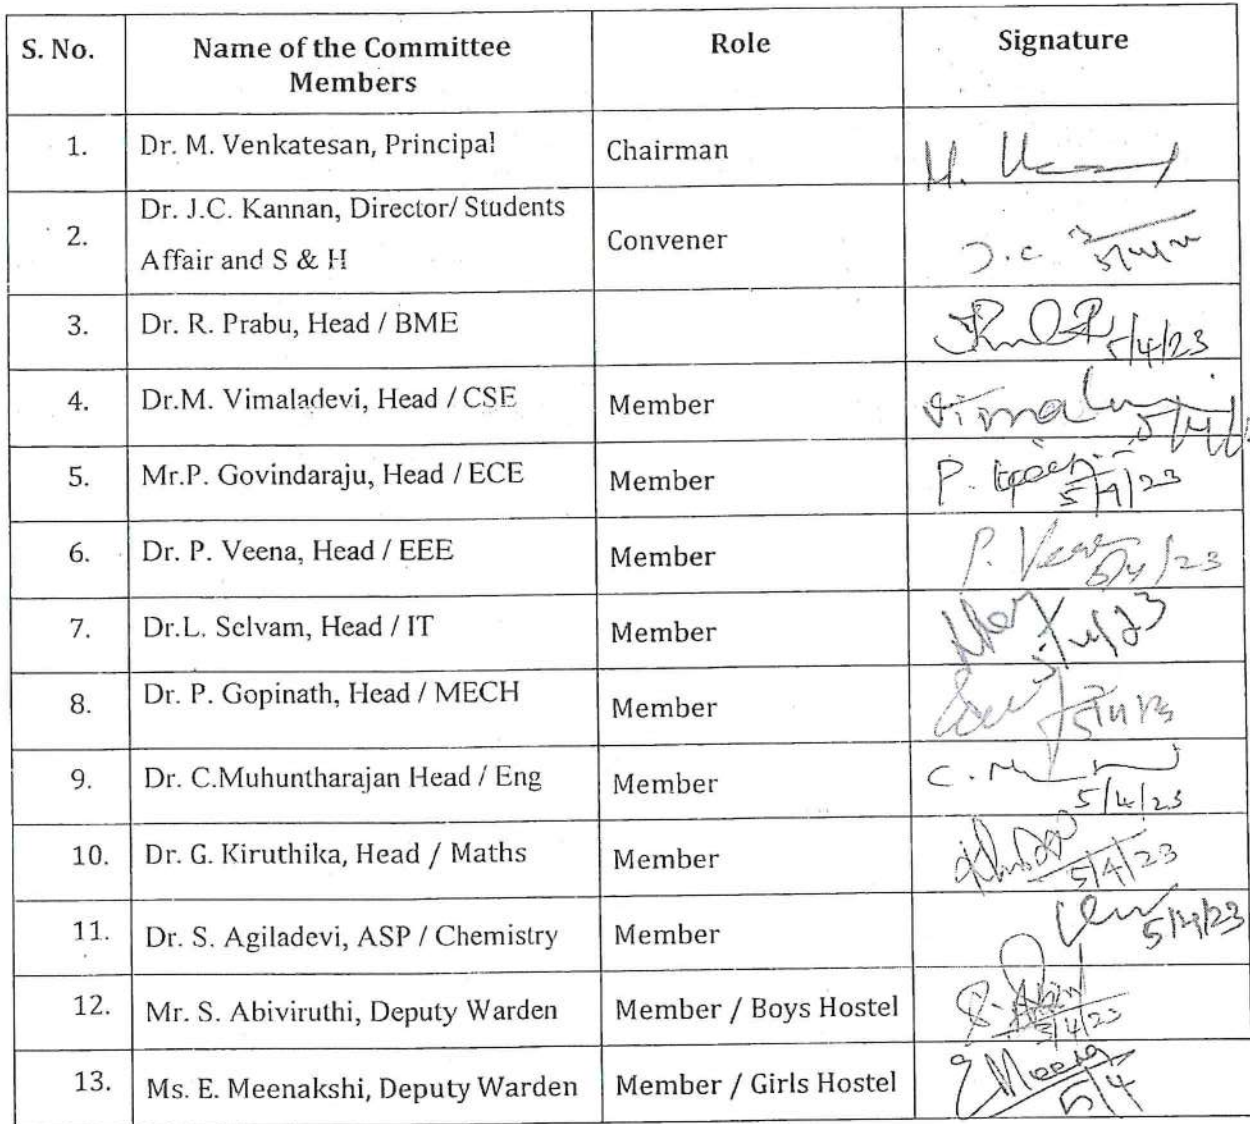 S. No. Name of the Committee Members Role Signature
1. Dr. M. Venkatesan, Principal Chairman M.
2. Dr. J.C. Kannan, Director/ Students Affair and S & H Convener J.c
3. Dr. R. Prabu, Head / BME 5/4/23
4. Dr.M. Vimaladevi, Head / CSE Member
5. Mr.P. Govindaraju, Head / ECE Member P. 5/4/23
6. Dr. P. Veena, Head / EEE Member P. 5/4/23
7. Dr.L. Selvam, Head / IT Member
8. Dr. P. Gopinath, Head / MECH Member
9. Dr. C.Muhuntharajan Head / Eng Member C. 5/4/23
10. Dr. G. Kiruthika, Head / Maths Member 5/4/23
11. Dr. S. Agiladevi, ASP / Chemistry Member 5/4/23
12. Mr. S. Abiviruthi, Deputy Warden Member / Boys Hostel 5/4/23
13. Ms. E. Meenakshi, Deputy Warden Member / Girls Hostel 5/4